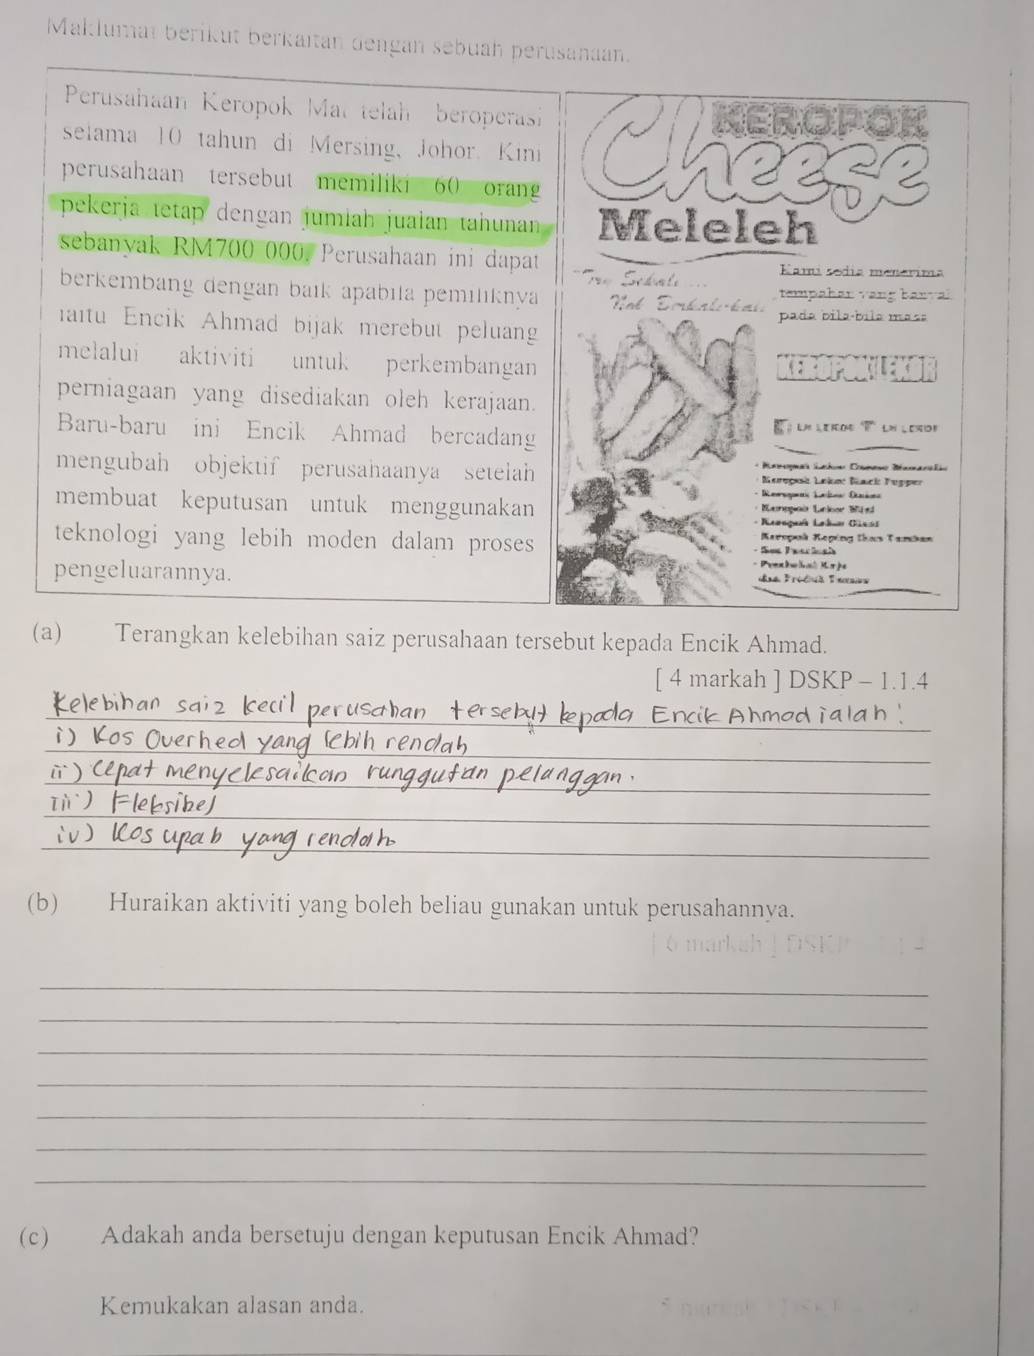 Maklumat berikut berkaitan dengan sebuah perusahaan.
Perusahaan Keropok Mat telah beroperasi
selama 10 tahun di Mersing, Johor. Kini
perusahaan tersebut memiliki 60 orang
pekerja tetap dengan jumlah jualan tahunan
sebanyak RM700 000. Perusahaan ini dapat
berkembang dengan baik apabila pemiliknya
iaitu Encik Ahmad bijak merebut peluang
melalui aktiviti untuk perkembangan
perniagaan yang disediakan oleh kerajaan.
Baru-baru ini Encik Ahmad bercadang
mengubah objektif perusahaanya setelah
membuat keputusan untuk menggunakan
teknologi yang lebih moden dalam proses
pengeluarannya.
KEROPOK
Cheese
Meleleh
Try Sekali ...
Kami sedia menerima
tempahan yang banyak
pada bila-bila masa
KEROPOK LEKOR
Keropok Lekor Black Pepper
(a) Terangkan kelebihan saiz perusahaan tersebut kepada Encik Ahmad.
[ 4 markah ] DSKP – 1.1.4
Kelebihan saiz kecil perusahan tersebut kepada Encik Ahmad ialah :
i) Kos Overhed yang lebih rendah
ii) Cepat menyelesaikan runggutan pelanggan.
iii) Fleksibel
iv) Kos upah yang rendah
(b) Huraikan aktiviti yang boleh beliau gunakan untuk perusahannya.
[ 6 markah ]
(c) Adakah anda bersetuju dengan keputusan Encik Ahmad?
Kemukakan alasan anda.